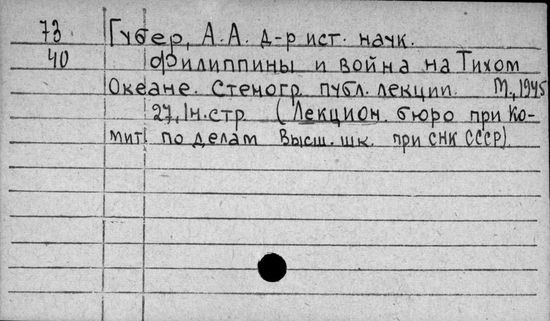 73 Губер, А.А. д-р ист. наук.
40 Филиппины и война на Тихом
Океане. Стеногр. публ. лекции. М., 1945
27, 1н. стр (Лекцион. бюро при Ко-
мит. по делам Высш. шк. при СНК СССР).